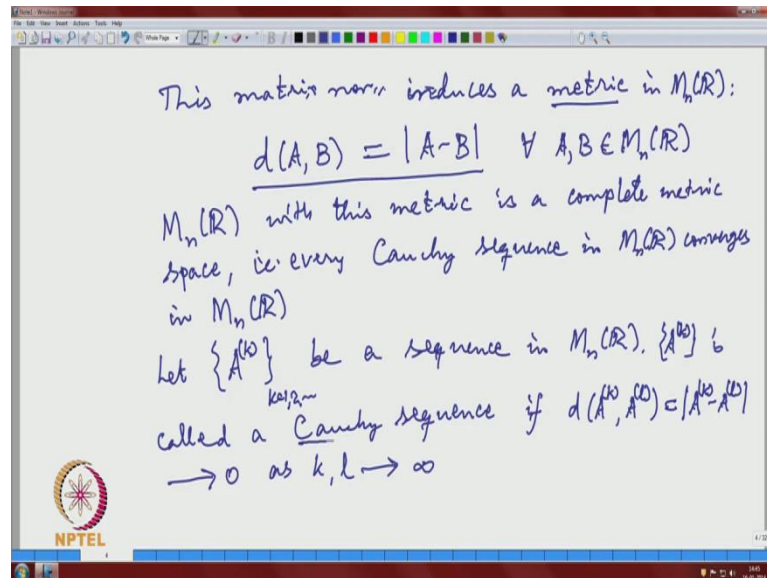 Note1 - Windows Journal
File Edit View Insert Actions Tools Help
This matrix norm induces a metric in Mₙ(ℝ):
d(A, B) = |A-B| ∀ A, B ∈ Mₙ(ℝ)
Mₙ(ℝ) with this metric is a complete metric
space, i.e. every Cauchy sequence in Mₙ(ℝ) converges
in Mₙ(ℝ)
Let {A⁽ᵏ⁾}ₖ₌₁,₂,… be a sequence in Mₙ(ℝ). {A⁽ᵏ⁾} is
called a Cauchy sequence if d(A⁽ᵏ⁾, A⁽ˡ⁾) = |A⁽ᵏ⁾-A⁽ˡ⁾|
→ 0 as k, l → ∞
NPTEL